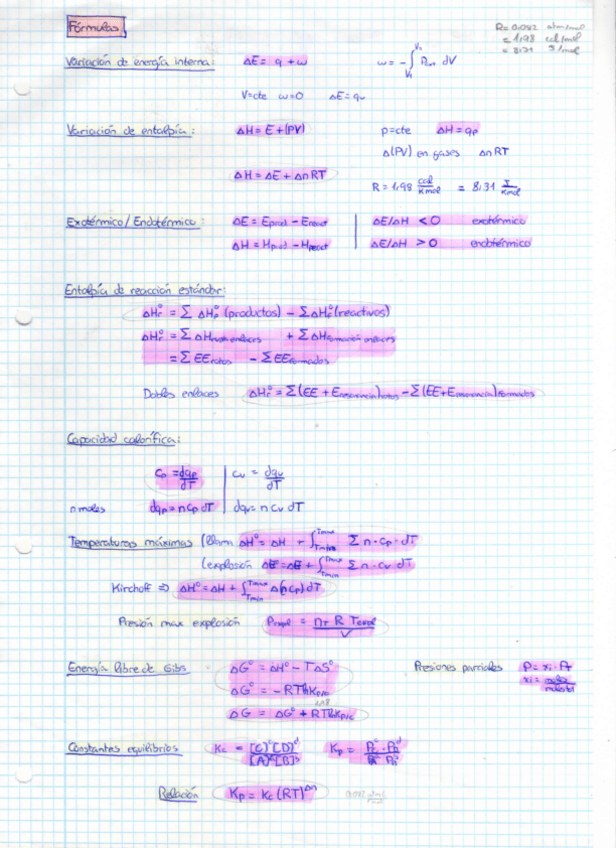 Fórmulas
R= 0,082 atm·l/mol
= 1,98 cal/mol
= 8,31 J/mol
Variación de energía interna: ΔE = q + w    w = -∫V₁^V₂ dV
V=cte w=0 ΔE = qv
Variación de entalpía: ΔH = E + (PV)    p=cte ΔH = qp
Δ(PV) en gases ΔnRT
ΔH = ΔE + ΔnRT
R = 1,98 cal/Kmol = 8,31 J/Kmol
Exotérmico/Endotérmico: ΔE = Eprod - Ereact    ΔE/ΔH < 0 exotérmico
ΔH = Hprod - Hreact    ΔE/ΔH > 0 endotérmico
Entalpía de reacción estándar:
ΔHr° = Σ ΔHf° (productos) - ΣΔHf° (reactivos)
ΔHr° = Σ ΔH enlaces + Σ ΔHformación enlaces
= Σ EErotos - Σ EEformados
Dobles enlaces ΔHr° = Σ(EE + Eresonancia)rotos - Σ(EE+Eresonancia)formados
Capacidad calorífica:
cp = dqp/dT    cv = dqv/dT
n moles dqp = n cp dT    dqv = n cv dT
Temperaturas máximas (llama ΔH° = ΔH + ∫Tmin^Tmax Σ n·cp·dT
(explosión ΔE° = ΔE + ∫Tmin^Tmax Σ n·cv dT
Kirchoff ⇒ ΔH° = ΔH + ∫Tmin^Tmax Δ(ncp)dT
Presión max explosión Pexpl = nT R Texpl/V
Energía libre de Gibs ΔG° = ΔH° - TΔS°    Presiones parciales P = xi · PT
ΔG° = -RTlnKp/c    xi =
1,98
ΔG = ΔG° + RTlnKp/c
Constantes equilibrios Kc = [C]^c[D]^d/[A]^a[B]^b    Kp = Pc^c·PD^d/PA^a·PB^b
Relación Kp = Kc (RT)^Δn